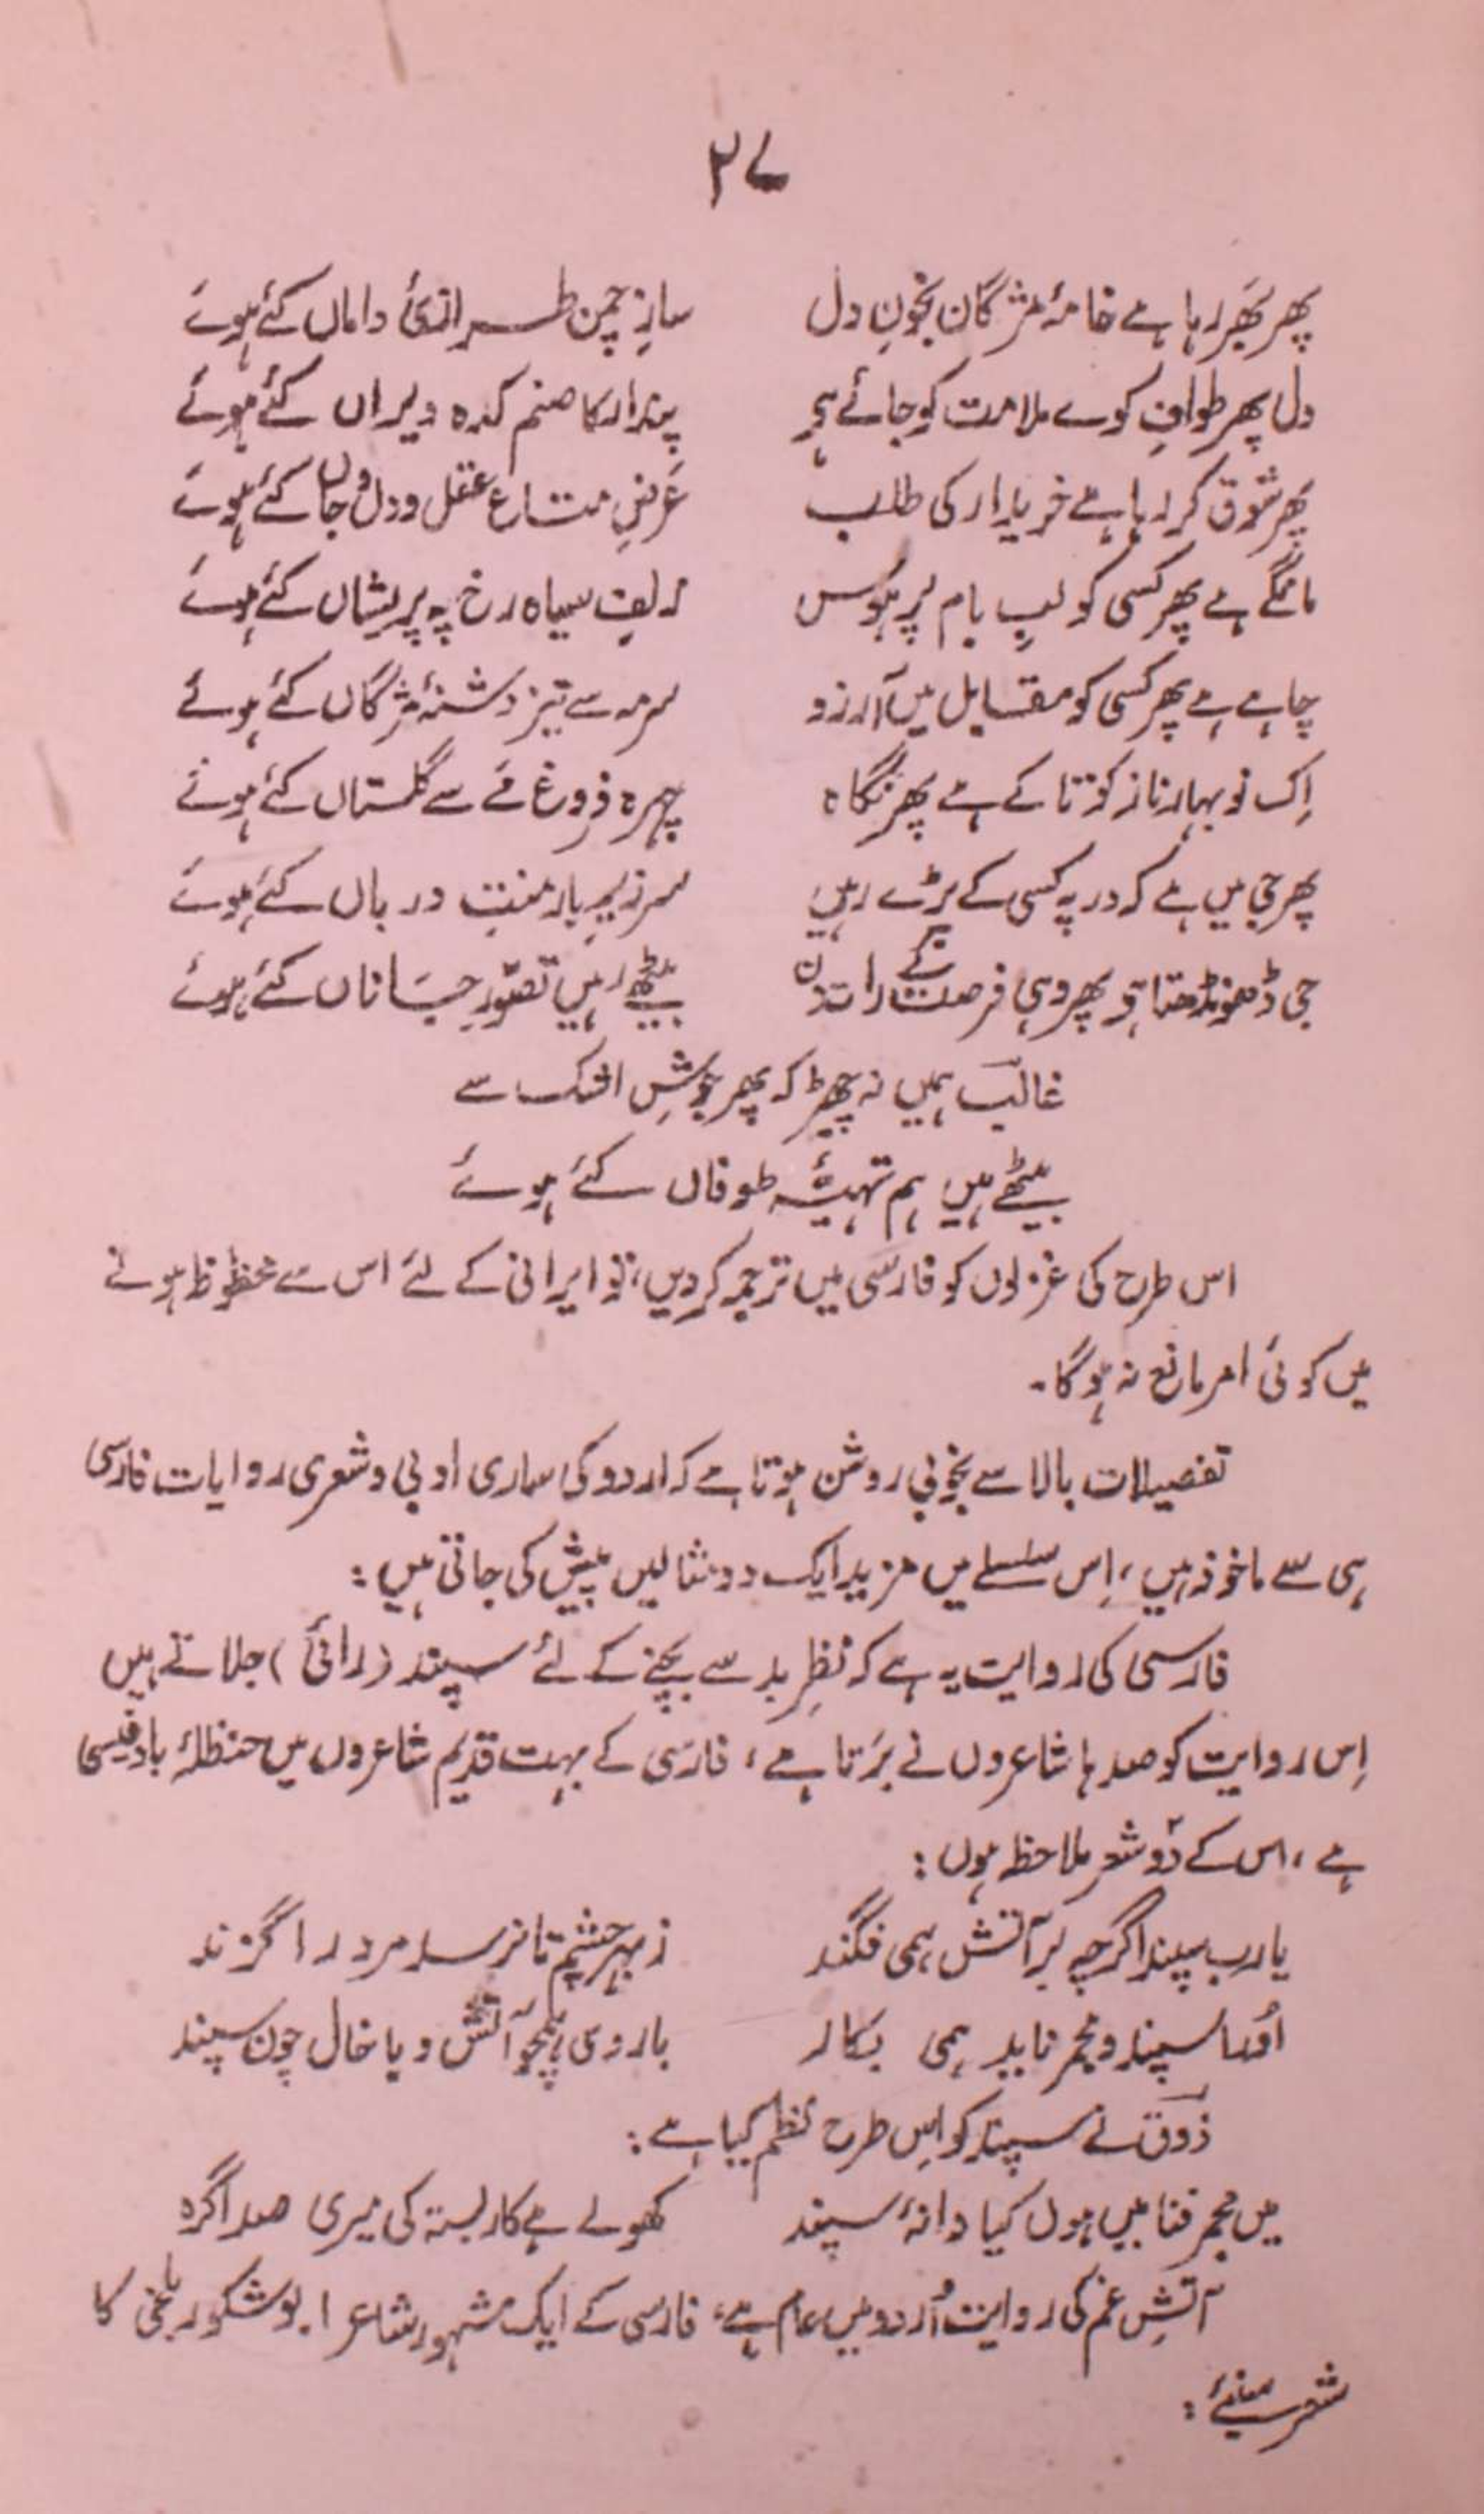 ۲۷
پھر بھر رہا ہے خامۂ مژگان بخونِ دل سازِ چمن طرازئ داماں کئے ہوئے
دل پھر طوافِ کوے ملامت کو جائے ہے پندار کا صنم کدہ ویراں کئے ہوئے
پھر شوق کر رہا ہے خریدار کی طلب عَرضِ متاع عقل و دل و جاں کئے ہوئے
مانگے ہے پھر کسی کو لبِ بام پر ہوَس زلفِ سیاہ رخ پہ پریشاں کئے ہوئے
چاہے ہے پھر کسی کو مقابل میں آرزو سرمہ سے تیز دشنۂ مژگاں کئے ہوئے
اِک نو بہار ناز کو تاکے ہے پھر نگاہ چہرہ فروغ مے سے گلستاں کئے ہوئے
پھر جی میں ہے کہ در پہ کسی کے پڑے رہیں سر زیرِ بارِ منتِ درباں کئے ہوئے
جی ڈھونڈھتا ہے پھر وہی فرصت کے رات دن بیٹھے رہیں تصوّرِ جاناں کئے ہوئے
غالبؔ ہمیں نہ چھیڑ کہ پھر جوشِ اشک سے
بیٹھے ہیں ہم تہیۂ طوفاں کئے ہوئے
اس طرح کی غزلوں کو فارسی میں ترجمہ کر دیں، تو ایرانی کے لئے اس سے محظوظ ہونے
میں کوئی امر مانع نہ ہوگا۔
تفصیلات بالا سے بخوبی روشن ہوتا ہے کہ اردو کی ساری ادبی و شعری روایات فارسی
ہی سے ماخوذ ہیں، اِس سلسلے میں مزید ایک دو مثالیں پیش کی جاتی ہیں:
فارسی کی روایت یہ ہے کہ نظرِ بد سے بچنے کے لئے سپند (رائی) جلاتے ہیں
اِس روایت کو صدہا شاعروں نے برَتا ہے، فارسی کے بہت قدیم شاعروں میں حنظلۂ بادغیسی
ہے، اس کے دو شعر ملاحظہ ہوں:
یارب سپند اگرچہ بر آتش ہمی فگند ز بہر چشم تا نرسد مر درا گزند
اورا سپند و مجمر ناید ہمی بکار با روی ہمچو آتش و با خال چون سپند
ذوقؔ نے سپند کو اِس طرح نظم کیا ہے:
میں مجمر فنا میں ہوں کیا دانۂ سپند کھولے ہے کار بستہ کی میری صدا گرہ
آتشِ غم کی روایت اُردو میں عام ہے، فارسی کے ایک مشہور شاعر ابو شکور بلخی کا
شعر سنیئے: